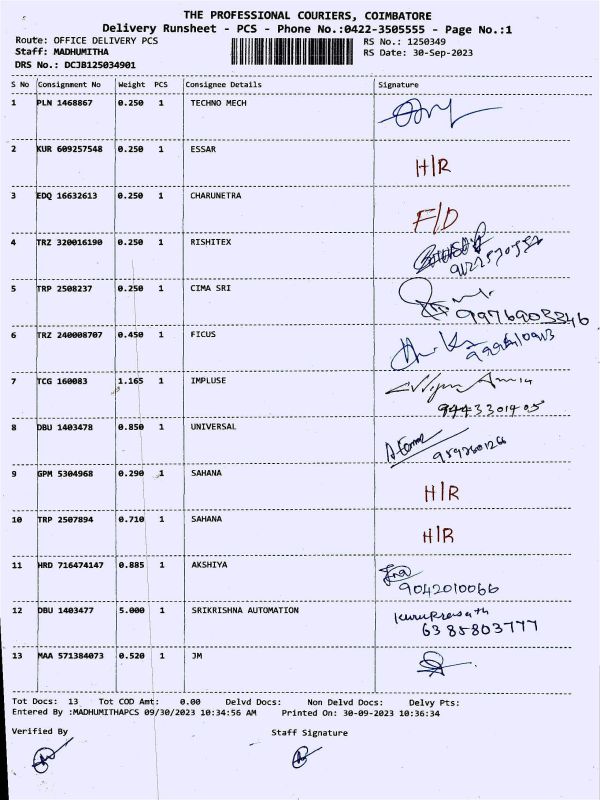 THE PROFESSIONAL COURIERS, COIMBATORE
Delivery Runsheet - PCS - Phone No.:0422-3505555 - Page No.:1
Route: OFFICE DELIVERY PCS RS No.: 1250349
Staff: MADHUMITHA RS Date: 30-Sep-2023
DRS No.: DCJB125034901
S No Consignment No Weight PCS Consignee Details Signature
1 PLN 1468867 0.250 1 TECHNO MECH
2 KUR 609257548 0.250 1 ESSAR H/R
3 EDQ 16632613 0.250 1 CHARUNETRA F/D
4 TRZ 320016190 0.250 1 RISHITEX
5 TRP 2508237 0.250 1 CIMA SRI 9976903346
6 TRZ 240008707 0.450 1 FICUS
7 TCG 160083 1.165 1 IMPLUSE 9443301405
8 DBU 1403478 0.850 1 UNIVERSAL
9 GPM 5304968 0.290 1 SAHANA H/R
10 TRP 2507894 0.710 1 SAHANA H/R
11 HRD 716474147 0.885 1 AKSHIYA 9042010066
12 DBU 1403477 5.000 1 SRIKRISHNA AUTOMATION 6385803777
13 MAA 571384073 0.520 1 JM
Tot Docs: 13 Tot COD Amt: 0.00 Delvd Docs: Non Delvd Docs: Delvy Pts:
Entered By :MADHUMITHAPCS 09/30/2023 10:34:56 AM Printed On: 30-09-2023 10:36:34
Verified By Staff Signature